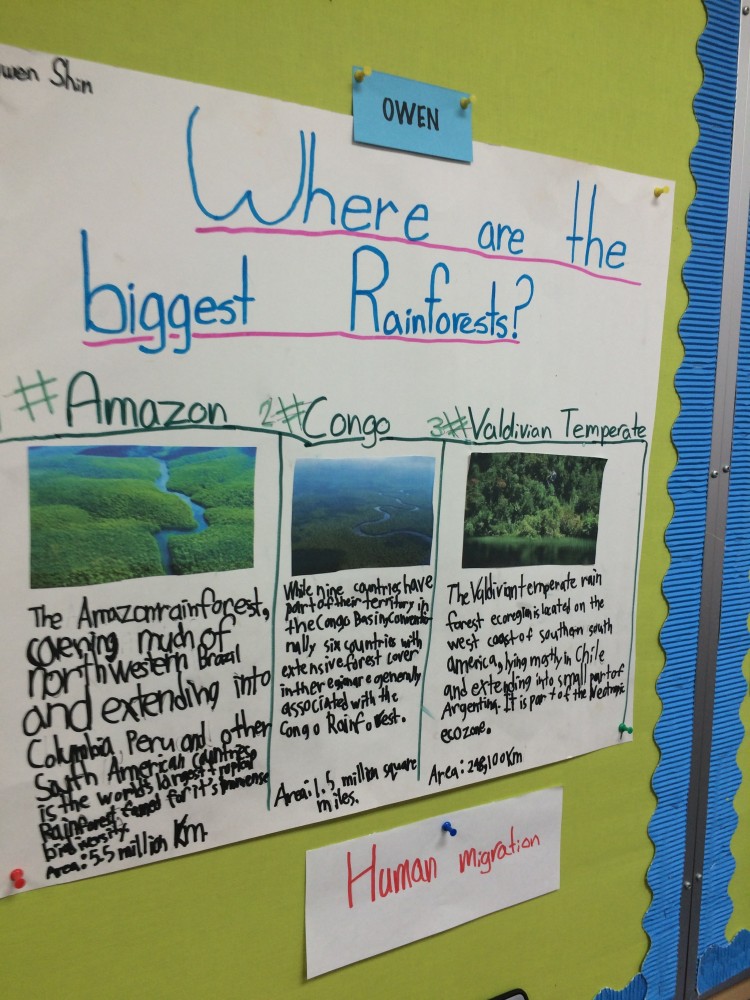 wen Shin
OWEN
Where are the
biggest Rainforests?
# Amazon
2# Congo
3# Valdivian Temperate
The Amazon rainforest,
covering much of
northwestern Brazil
and extending into
Columbia, Peru and other
South American countries,
is the world's largest tropical
Rainforest, famed for it's immense
biodiversity.
Area: 5.5 million Km.
While nine countries have
part of their territory in
the Congo Basin, conventio
nally six countries with
extensive forest cover
in the region are generally
associated with the
Congo Rainforest.
Area: 1.5 million square
miles.
The Valdivian temperate rain
forest ecoregion is located on the
west coast of southern south
america, lying mostly in Chile
and extending into small part of
Argentina. It is part of the Neotropic
ecozone.
Area: 248,100 Km
Human migration